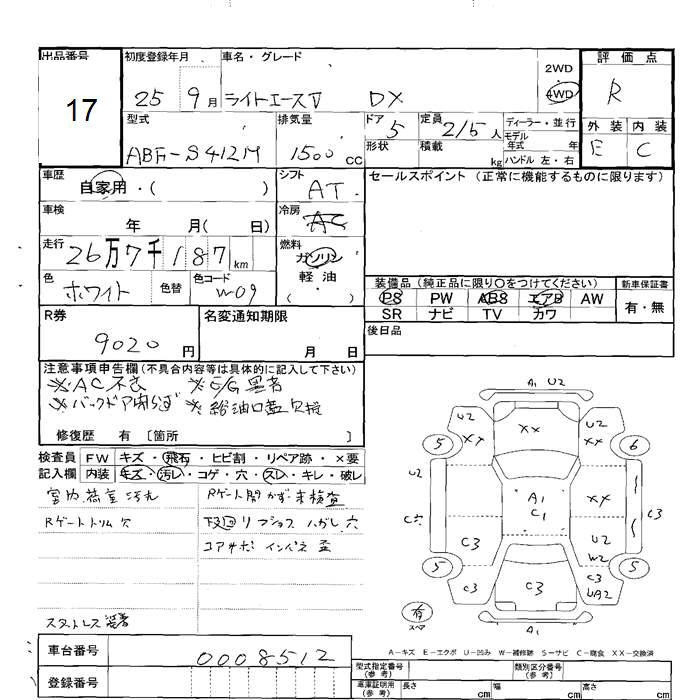 出品番号 初度登録年月 車名・グレード 2WD 評価点
17 25 9月 ライトエースV DX 4WD R
型式 排気量 ドア 5 定員 2/5人 ディーラー・並行 外装 内装
ABF-S412M 1500 CC 形状 積載 kg モデル年式 年 E C
ハンドル 左・右
車歴 シフト セールスポイント (正常に機能するものに限ります)
自家用・( ) AT
車検 冷房
年 月( 日) AC
走行 燃料
26万7千187km ガソリン
色 色替 色コード 軽油 装備品 (純正品に限り〇をつけてください) 新車保証書
ホワイト W09 PS PW ABS エアB AW 有・無
R券 名変通知期限 SR ナビ TV カワ
9020円 月 日 後日品
注意事項申告欄(不具合内容等は具体的に記入して下さい)
※AC不良 ※E/G異音
※バックドア開かず ※給油口蓋欠損
修復歴 有 〔箇所 〕
検査員 FW キズ・飛石・ヒビ割・リペア跡・×要
記入欄 内装 キズ・汚レ・コゲ・穴・スレ・キレ・破レ
室内荷室汚れ Rゲート開かず未検査
Rゲートトリム穴 下廻り
コアサポ インパネ
スタットレス
A1 U2
U2 XX XX U2 XX
5 6
U2 A1 C1 XX C3
C3 U2 W2
5 C3 C3 C3 UA2 5
有 スペア A1
A-キズ E-エクボ U-凹み W-補修跡 S-サビ C-腐食 XX-交換済
車台番号 0008512 型式指定番号(参考) 類別区分番号(参考)
登録番号 車庫証明用(参考) 長さ cm 幅 cm 高さ cm